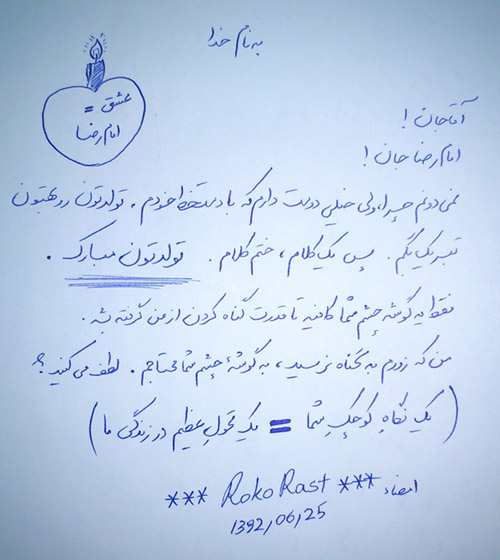 به نام خدا
عشق =
امام رضا
آقا جان !
امام رضا جان !
نمی دونم چرا، ولی خیلی دوست دارم که با دستخط خودم، تولدتون رو بهتون
تبریک بگم. پس یک کلام، ختم کلام. تولدتون مبارک.
فقط یه گوشه چشم شما کافیه تا قدرت گناه کردن از من گرفته بشه.
من که زورم به گناه نرسید، به گوشهٔ چشم شما محتاجم. لطف می کنید؟
(یک نگاهِ کوچکِ شما = یک تحولِ عظیم در زندگی ما)
امضاء *** RokoRast ***
1392,06,25